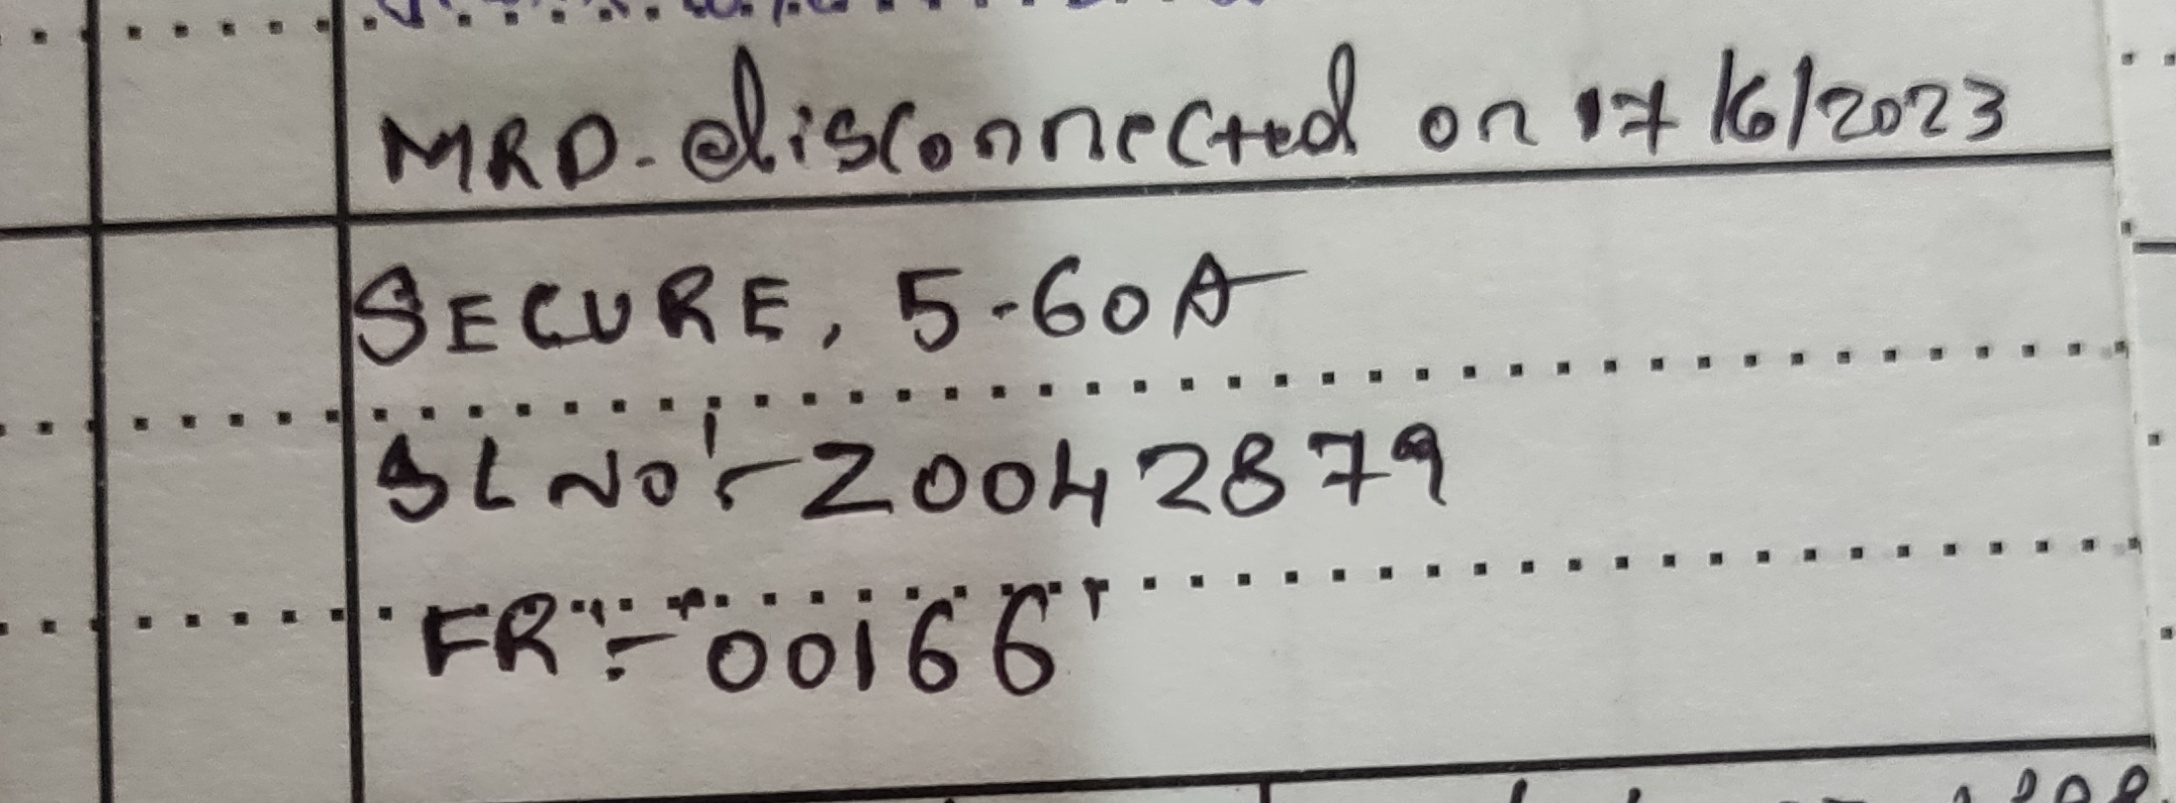 MRD. disconnected on 17/6/2023
SECURE, 5-60A
SL NO:- 20042879
FR:- 00166